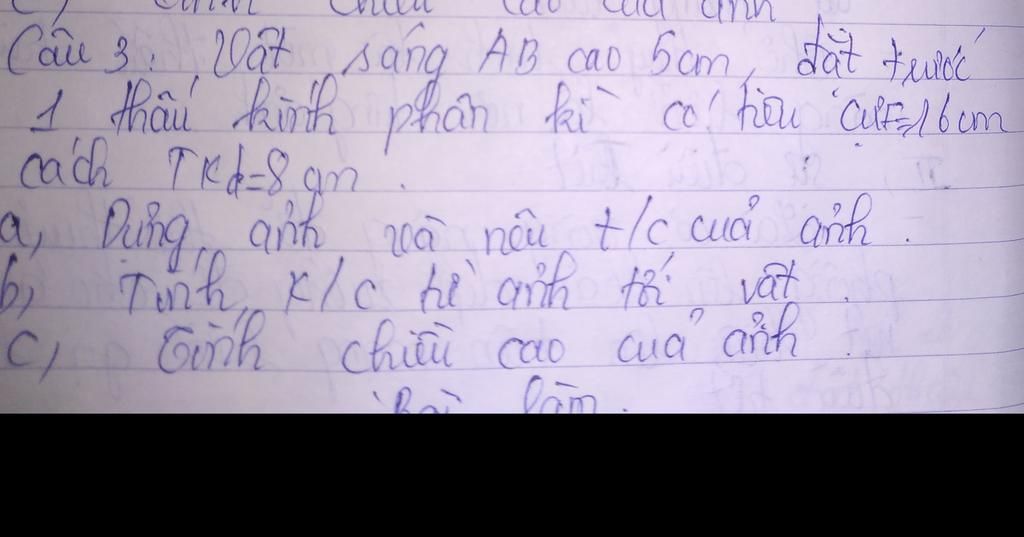 c) Tính chiều cao của ảnh
Câu 3. Vật sáng AB cao 5cm, đặt trước
1 thấu kính phân kì có tiêu cự F=16cm
cách TK d=8cm.
a, Dựng ảnh và nêu t/c của ảnh.
b, Tính k/c từ ảnh tới vật.
c, Tính chiều cao của ảnh.
Bài làm.